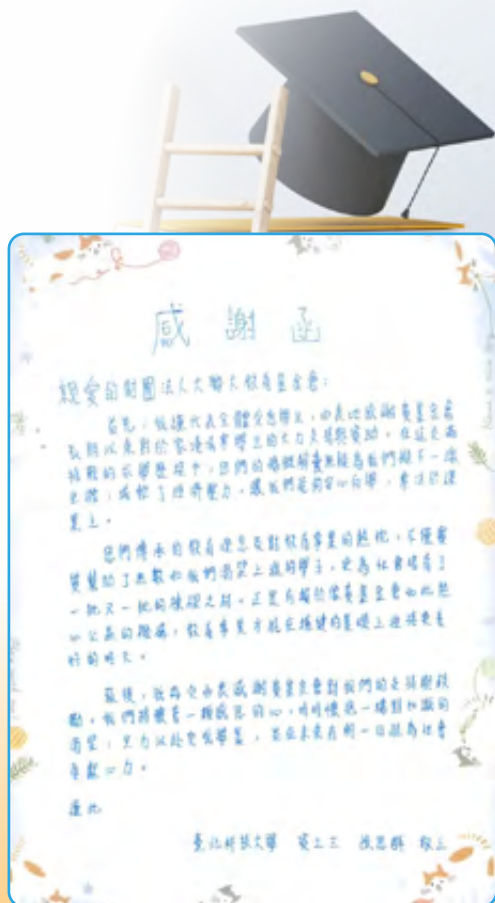 感謝函
親愛的財團法人大聯大教育基金會：
首先，僅謹代表全體受惠學生，由衷地感謝貴基金會
長期以來對於家境清寒學生的大力支持與資助，在這充滿
挑戰的求學歷程中，您們的獎助學金無疑為我們點下一線
光輝，減輕了經濟壓力，讓我們能夠安心向學，專注於課
業上。
您們傳承的教育理念及對教育事業的熱忱，不僅實
質幫助了無數如我們渴望上進的學子，更為社會培育了
一批又一批的棟樑之材。正是有賴於像貴基金會如此熱
心公益的機構，教育事業才能在穩健的基礎上迎接更美
好的明天。
最後，我再次由衷感謝貴基金會對我們的支持與鼓
勵。我們將懷著一顆感恩的心，時時懷抱一場對知識的
渴望，全力以赴完成學業，並在未來有朝一日能為社會
貢獻心力。
謹此
臺北科技大學 資工三 敬上